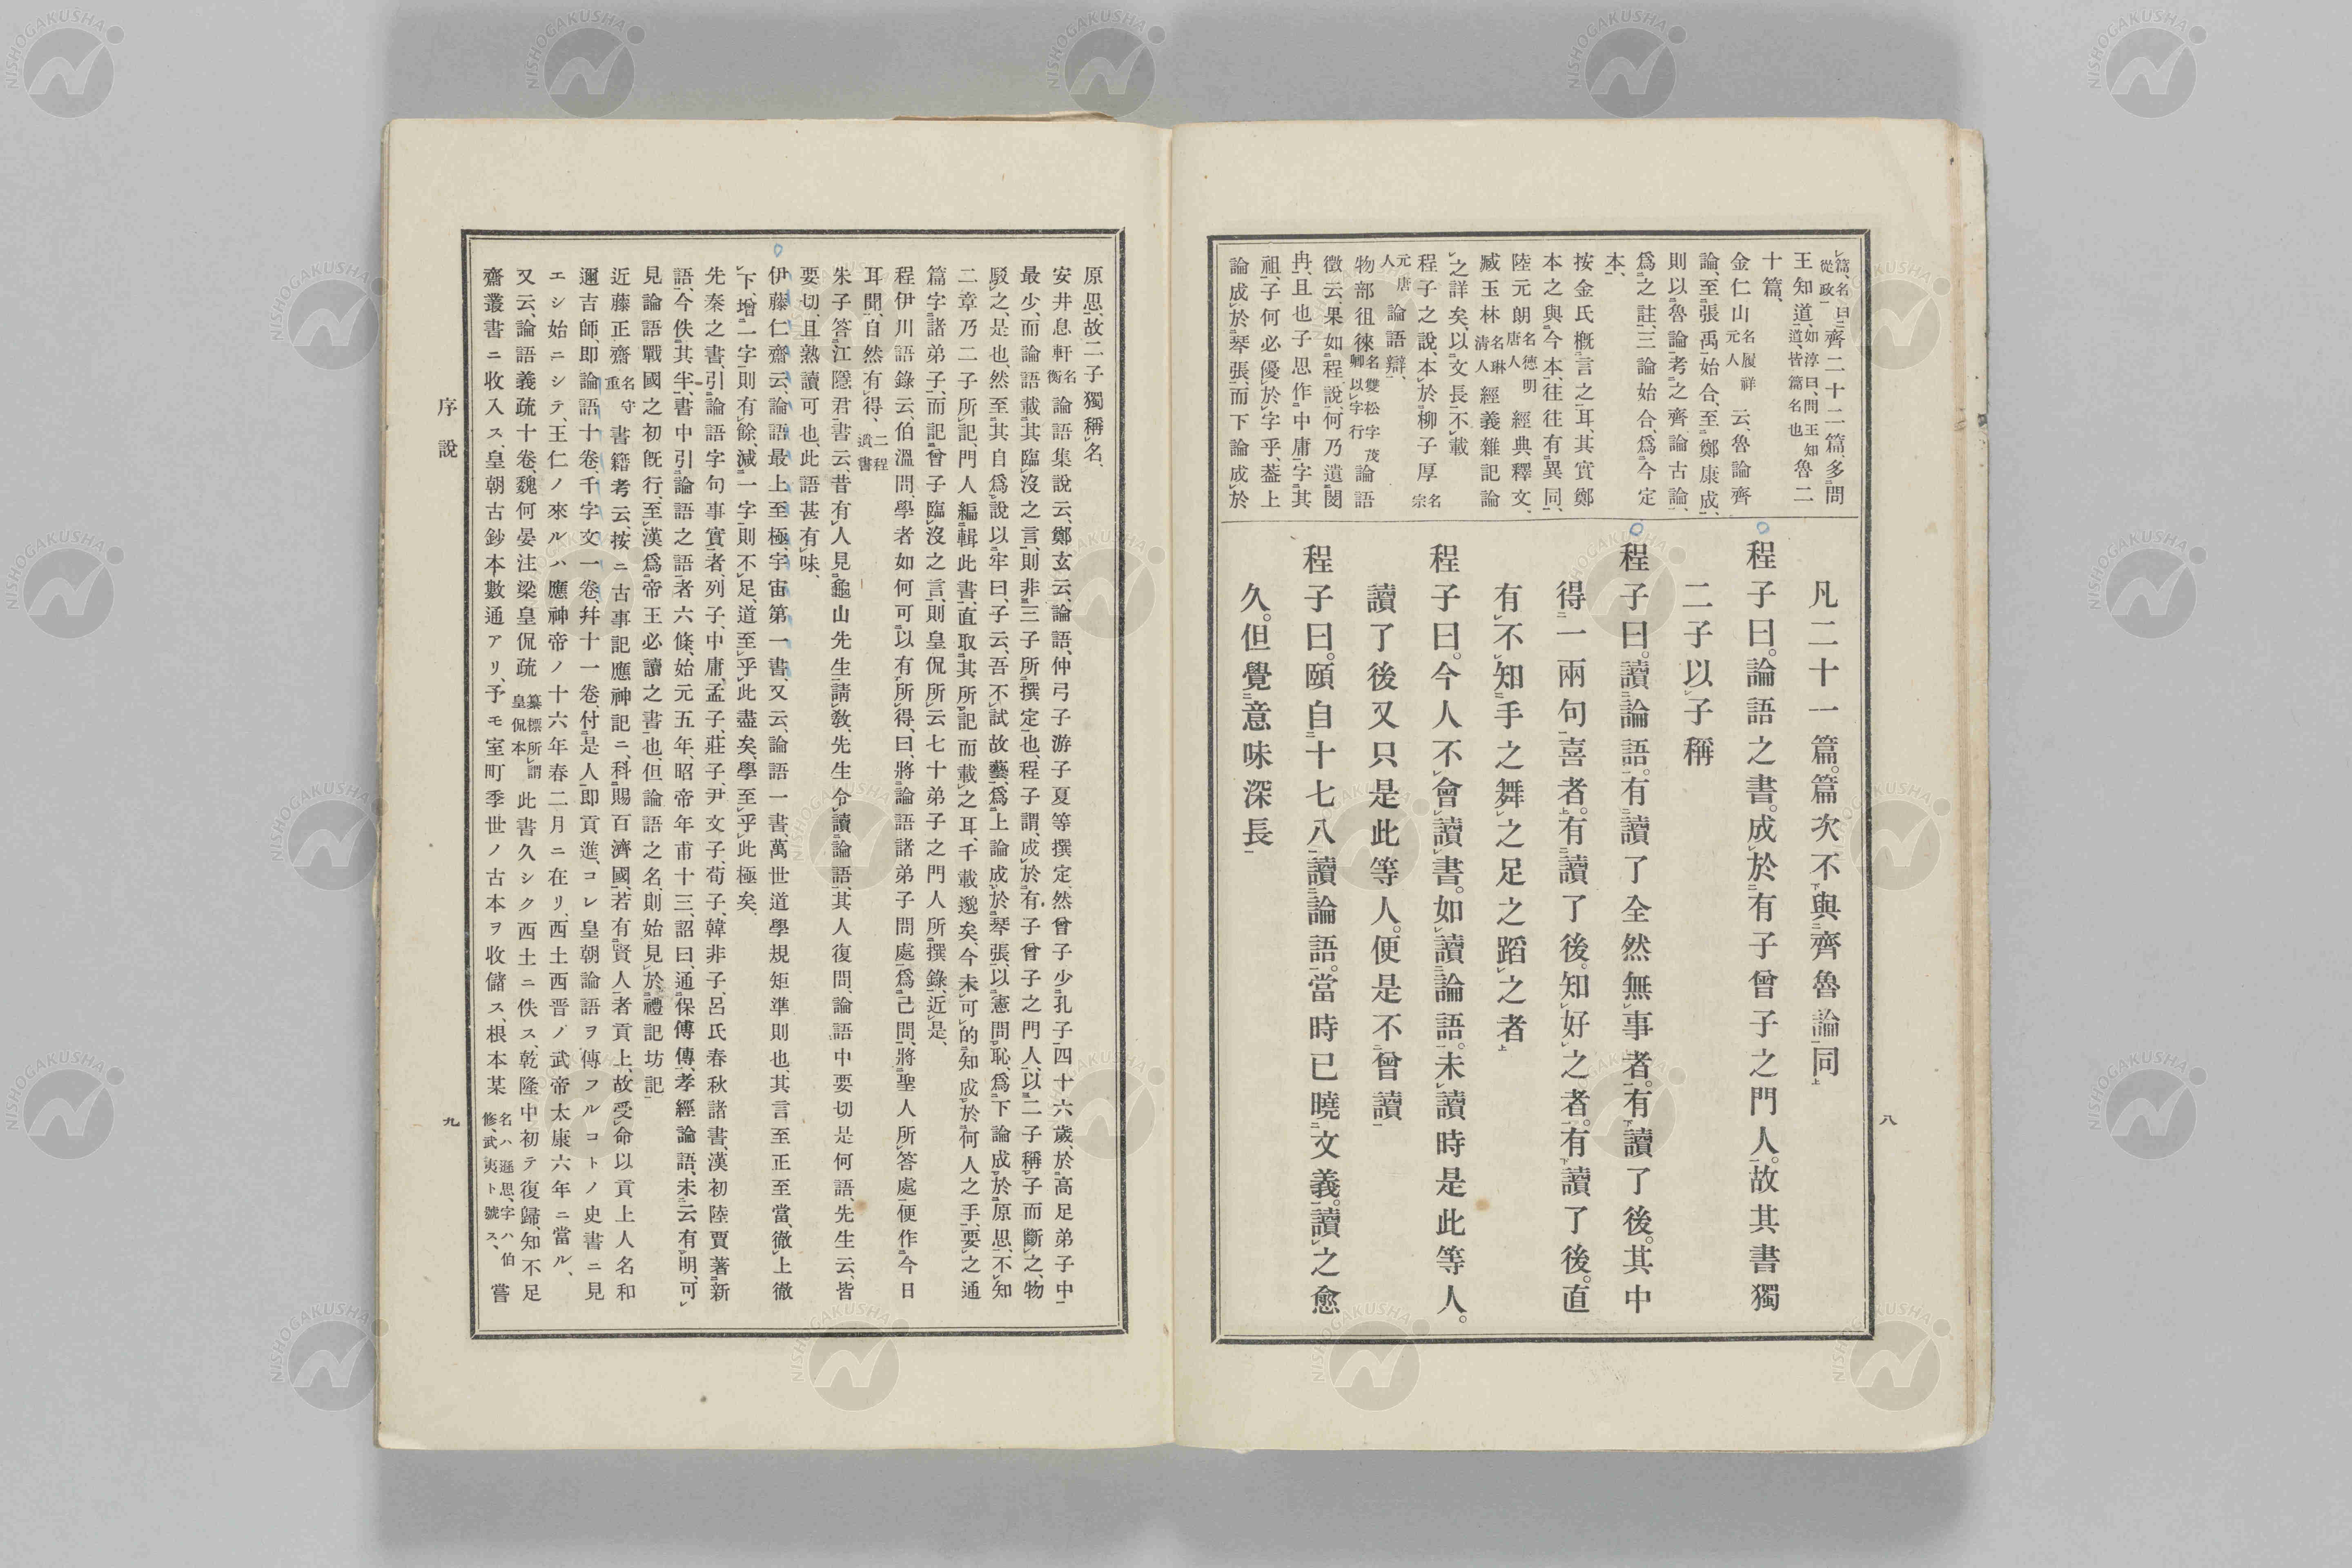 篇、名曰
從政
齊二十二篇、多問
王知道、如淳曰、問王知
道、皆篇名也
魯二
十篇、
金仁山名履祥
元人
云、魯論齊
論、至張禹始合、至鄭康成、
則以魯論考之齊論古論、
爲之註、三論始合、爲今定
本、
按金氏槪言之耳、其實鄭
本之與今本、往往有異同、
陸元朗名德明
唐人
經典釋文、
臧玉林名琳
清人
經義雜記論
之詳矣、以文長不載
程子之說、本於柳子厚名
宗
元唐
人
論語辯、
物部徂徠名雙松字茂
卿以字行
論語
徵云、果如程說、何乃遺閔
冉、且也子思作中庸字其
祖、子何必優於字乎、葢上
論成於琴張、而下論成於
凡二十一篇。篇次不與齊魯論同
程子曰。論語之書。成於有子曾子之門人。故其書獨
二子以子稱
程子曰。讀論語。有讀了全然無事者。有讀了後。其中
得一兩句喜者。有讀了後。知好之者。有讀了後。直
有不知手之舞之足之蹈之者
程子曰。今人不會讀書。如讀論語。未讀時是此等人。
讀了後又只是此等人。便是不曾讀
程子曰。頤自十七八讀論語。當時已曉文義。讀之愈
久。但覺意味深長
八
原思、故二子獨稱名、
安井息軒名
衡
論語集說云、鄭玄云、論語、仲弓子游子夏等撰定、然曾子少孔子四十六歲、於高足弟子中
最少、而論語載其臨沒之言、則非三子所撰定也、程子謂、成於有子曾子之門人、以二子稱子而斷之、物
駁之、是也、然至其自爲說以牢曰、子云、吾不試故藝、爲上論成於琴張、以憲問恥、爲下論成於原思、不知
二章乃二子所記、門人編輯此書、直取其所記而載之耳、千載邈矣、今未可的知成於何人之手、要之通
篇字諸弟子、而記曾子臨沒之言、則皇侃所云七十弟子之門人所撰錄、近是、
程伊川語錄云、伯溫問、學者如何可以有所得、曰、將論語諸弟子問處爲己問、將聖人所答處便作今日
耳聞、自然有得、二程
遺書
朱子答江隱君書云、昔有人見龜山先生請教、先生令讀論語、其人復問、論語中要切是何語、先生云、皆
要切、且熟讀可也、此語甚有味、
伊藤仁齋云、論語最上至極、宇宙第一書、又云、論語一書、萬世道學規矩準則也、其言至正至當、徹上徹
下、增一字則有餘、減一字則不足、道至乎此盡矣、學至乎此極矣、
先秦之書、引論語字句事實者、列子、中庸、孟子、莊子、尹文子、荀子、韓非子、呂氏春秋諸書、漢初陸賈著新
語、今佚其半、書中引論語之語者六條、始元五年、昭帝年甫十三、詔曰、通保傅傳、孝經論語、未云有明、可
見論語戰國之初旣行、至漢爲帝王必讀之書也、但論語之名、則始見於禮記坊記
近藤正齋名守
重
書籍考云、按ニ古事記應神記ニ、科賜百濟國、若有賢人者貢上、故受命以貢上人名和
邇吉師、即論語十卷、千字文一卷、幷十一卷、付是人即貢進、コレ皇朝論語ヲ傳フルコトノ史書ニ見
エシ始ニシテ、王仁ノ來ルハ應神帝ノ十六年春二月ニ在リ、西土西晋ノ武帝太康六年ニ當ル、
又云、論語義疏十卷、魏何晏注梁皇侃疏纂標所謂
皇侃本
此書久シク西土ニ佚ス、乾隆中初テ復歸、知不足
齋叢書ニ收入ス、皇朝古鈔本數通アリ、予モ室町季世ノ古本ヲ收儲ス、根本某名ハ遜思、字ハ伯
修、武夷ト號ス、
嘗
序說
九